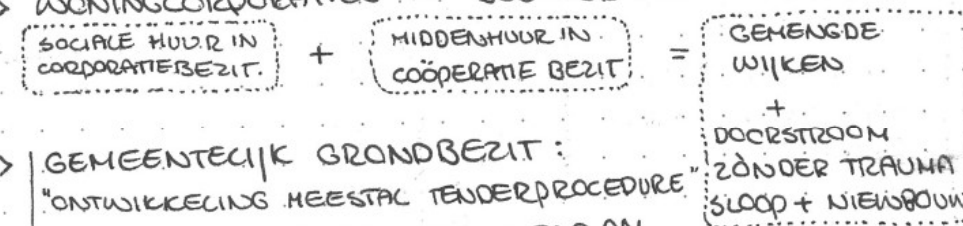 > WONINGCORPORATIES
SOCIALE HUUR IN
CORPORATIEBEZIT.
+
MIDDENHUUR IN
COÖPERATIE BEZIT
=
GEMENGDE
WIJKEN
+
DOORSTROOM
ZÒNDER TRAUMA
SLOOP + NIEUWBOUW
> GEMEENTELIJK GRONDBEZIT:
"ONTWIKKELING MEESTAL TENDERPROCEDURE"